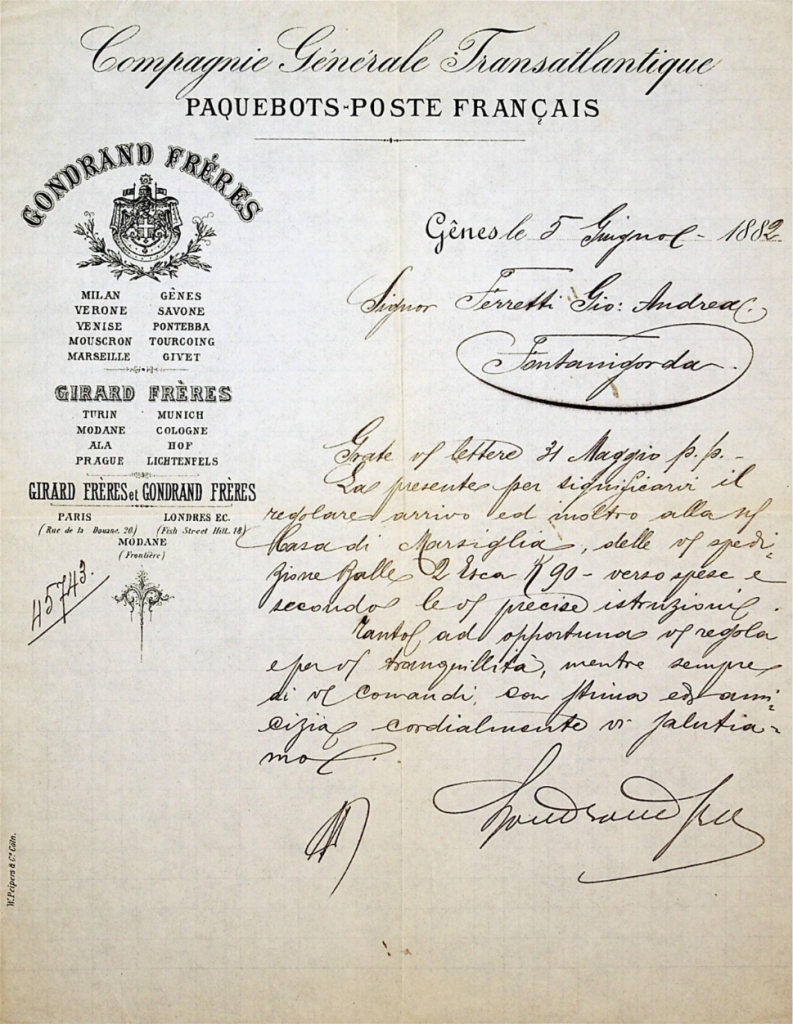 Compagnie Générale Transatlantique
PAQUEBOTS-POSTE FRANÇAIS
GONDRAND FRÉRES
MILAN GÊNES
VERONE SAVONE
VENISE PONTEBBA
MOUSCRON TOURCOING
MARSEILLE GIVET
GIRARD FRÈRES
TURIN MUNICH
MODANE COLOGNE
ALA HOF
PRAGUE LICHTENFELS
GIRARD FRÈRES et GONDRAND FRÈRES
PARIS LONDRES EC.
(Rue de la Douane. 20) (Fish Street Hill. 18)
MODANE
(Frontière)
45743.
Gênes le 5 Giugno - 1882
Signor Ferretti Gio: Andrea.
Fontanigorda.
Grate vs lettere 31 Maggio p.p. -
La presente per significarvi il
regolare arrivo ed inoltro alla ns
Casa di Marsiglia, delle vs spedi-
zione Balle 2 Esca K 90 - verso spese e
secondo le vs precise istruzioni.
Tanto ad opportuna vs regola
e per vs tranquillità, mentre sempre
ai vs comandi, con stima ed ami-
cizia cordialmente vi salutia-
mo.
Gondrand
W. Peipers & Cº Cöln.